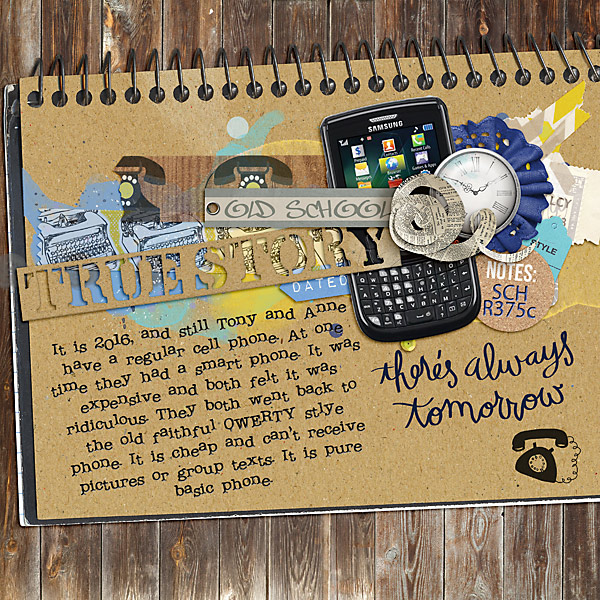 SAMSUNG
OLD SCHOOL
TRUE STORY
DATED
STYLE
NOTES:
SCH
R375c
It is 2016, and still Tony and Anne
have a regular cell phone. At one
time they had a smart phone. It was
expensive and both felt it was
ridiculous. They both went back to
the old faithful QWERTY stlye
phone. It is cheap and can't receive
pictures or group texts. It is pure
basic phone.
there's always
tomorrow